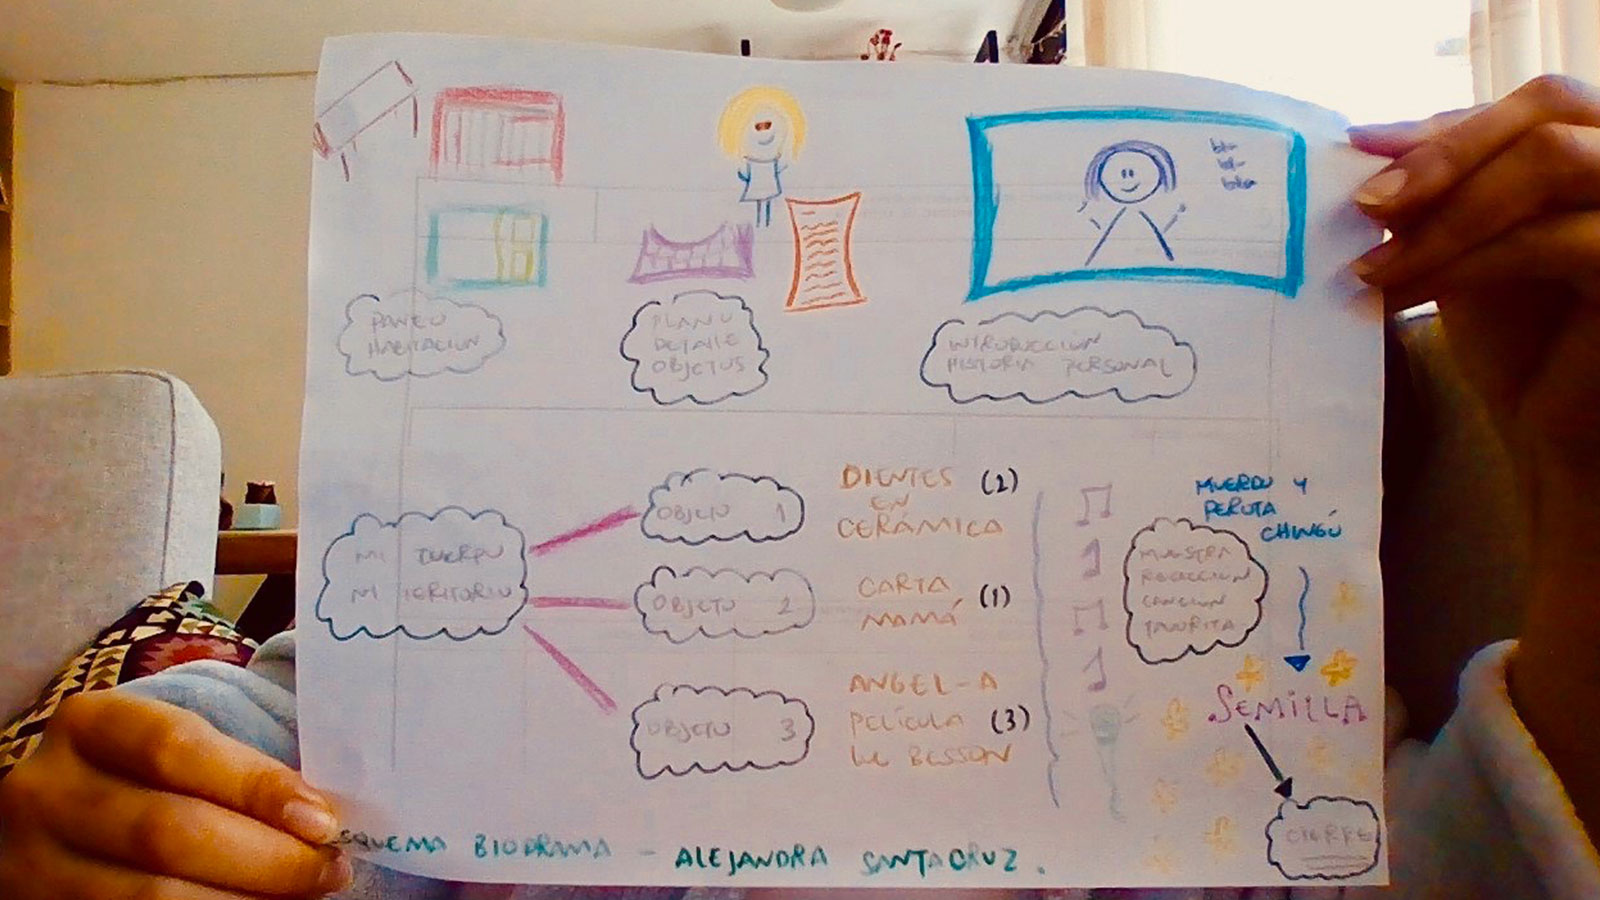 bla
bla
bla
PANEO
HABITACIÓN
PLANO
DETALLE
OBJETOS
INTRODUCCIÓN
HISTORIA PERSONAL
MI CUERPO
MI TERITORIO
OBJETO 1
DIENTES (2)
EN
CERÁMICA
OBJETO 2
CARTA
MAMÁ (1)
OBJETO 3
ANGEL-A
PELÍCULA (3)
BESSON
MUERDO Y
PEROTA
CHINGÓ
MUESTRA
CANCIÓN
FAVORITA
SEMILLA
CIERRE
ESQUEMA BIODRAMA - ALEJANDRA SANTACRUZ.